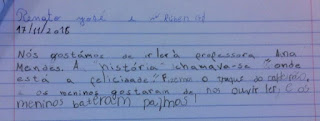 Renato José e Ruben
17/11/2016
Nós gostámos de ir ler à professora Ana
Mendes. A história chamava-se "onde
está a felicidade?" o truque do
e os meninos gostaram de nos ouvir ler. E os
meninos bateram palmas!